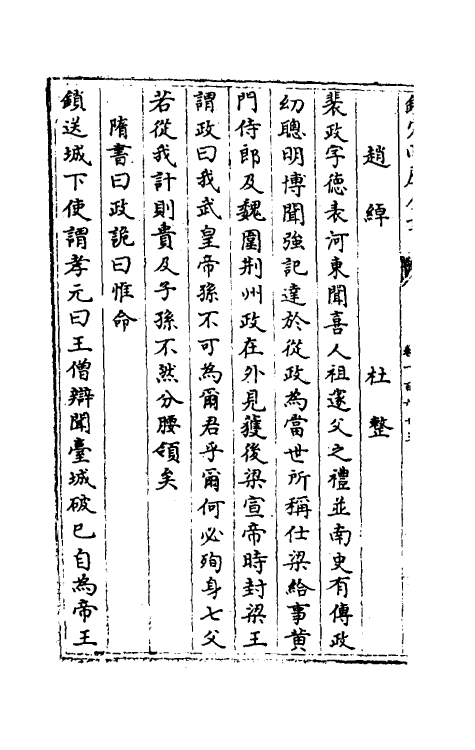 趙綽　杜整
裴政字德表河東聞喜人祖邃父之禮並南史有傳政
幼聰明博聞強記達於從政為當世所稱仕梁給事黄
門侍郎及魏圍荆州政在外見獲後梁宣帝時封梁王
謂政曰我武皇帝孫不可為爾君乎爾何必殉身七父
若從我計則貴及子孫不然分腰領矣
隋書曰政詭曰惟命
鎖送城下使謂孝元曰王僧辯聞臺城破已自為帝王